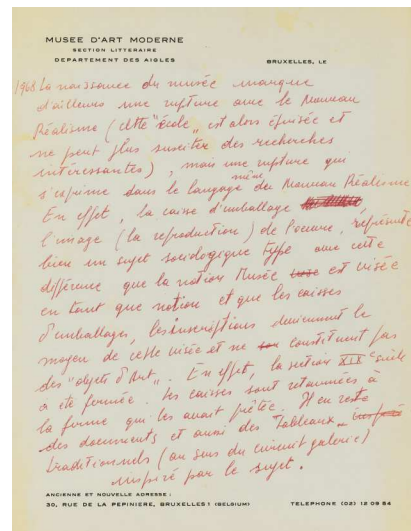 MUSEE D'ART MODERNE
SECTION LITTERAIRE
DEPARTEMENT DES AIGLES
BRUXELLES, LE
1968 La naissance du musée marque
d'ailleurs une rupture avec le Nouveau
Réalisme (cette "école" est alors épuisée et
ne peut plus susciter des recherches
intéressantes), mais une rupture qui
s'exprime dans le langage même du Nouveau Réalisme
En effet, la caisse d'emballage
l'image (la reproduction) de l'oeuvre, représente
bien un sujet sociologique type avec cette
différence que la notion Musée est visée
en tant que notion et que les caisses
d'emballages, les inscriptions deviennent le
moyen de cette visée et ne constituent pas
des "objets d'Art". En effet, la section XIXe siècle
a été fermée. Les caisses sont retournées à
la firme qui les avait prêtée. Il en reste
des documents et aussi des Tableaux
traditionnels (au sens du circuit galerie)
inspiré par le sujet.
ANCIENNE ET NOUVELLE ADRESSE :
30, RUE DE LA PEPINIERE, BRUXELLES 1 (BELGIUM)
TELEPHONE (02) 12 09 54